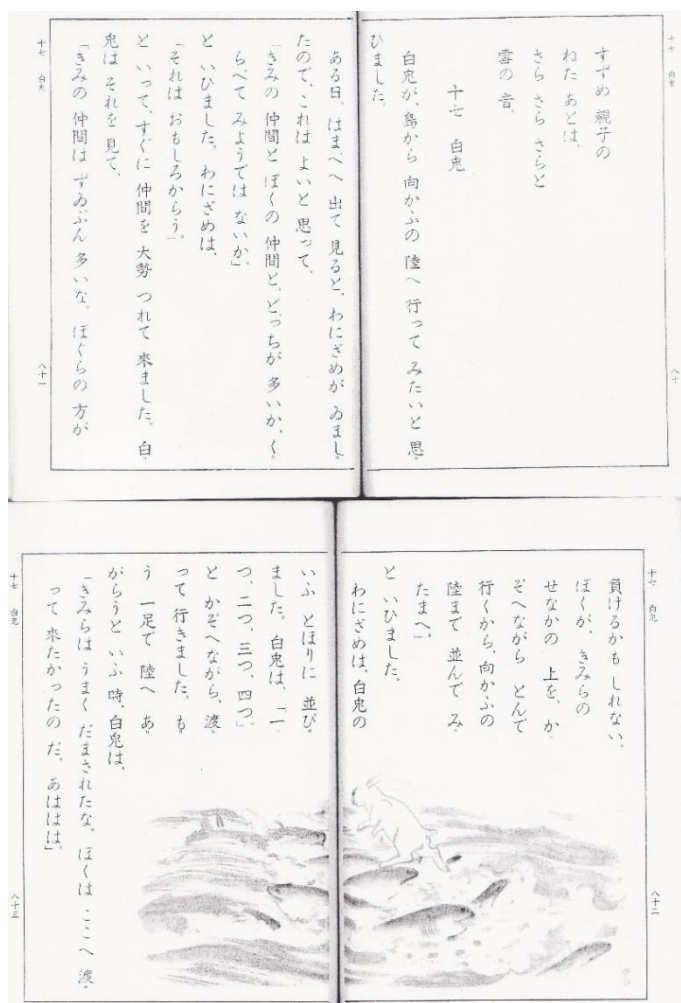 十七 白兎
八十
すずめ 親子の
ねた あとは、
さら さら さらと
雪の 音。
十七 白兎
白兎が、島から 向かふの 陸へ 行って みたいと 思
ひました。
ある日、はまべへ 出て 見ると、わにざめが ゐまし
たので、これは よいと 思って、
「きみの 仲間と ぼくの 仲間と、どっちが 多いか、く
らべて みようでは ないか」
と いひました。わにざめは、
「それは おもしろからう」
と いって、すぐに 仲間を 大勢 つれて 來ました。白
兎は それを 見て、
「きみの 仲間は ずゐぶん 多いな。ぼくらの 方が
十七 白兎
八十一
十七 白兎
八十二
負けるかも しれない。
ぼくが、きみらの
せなかの 上を、か
ぞへながら とんで
行くから、向かふの
陸まで 並んで み
たまへ」
と いひました。
わにざめは、白兎の
いふ とほりに 並び
ました。白兎は、「一
つ、二つ、三つ、四つ」
と かぞへながら、渡
って 行きました。も
う 一足で 陸へ あ
がらうと いふ 時、白兎は、
「きみらは うまく だまされたな。ぼくは ここへ 渡
って 來たかったの だ。あははは」
十七 白兎
八十三